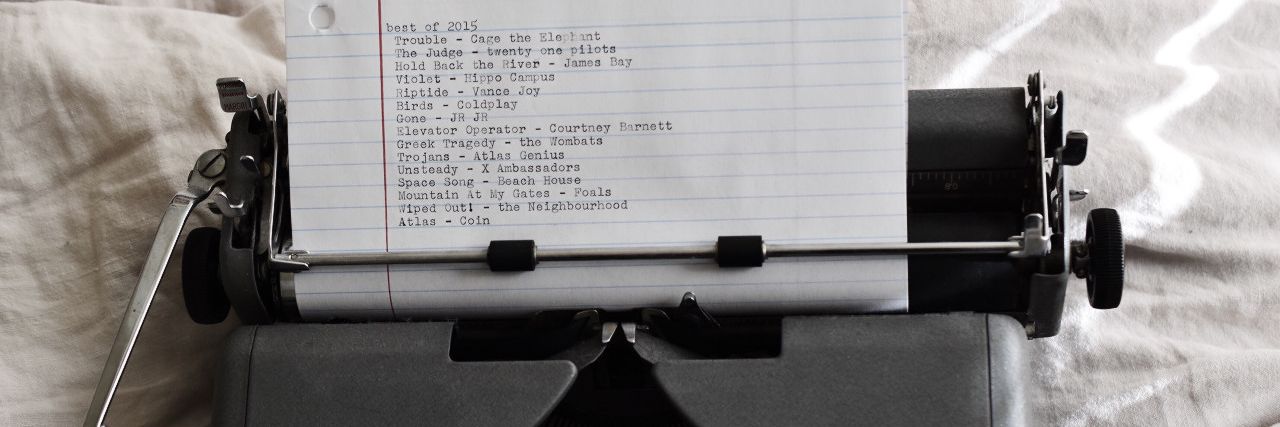 best of 2015
Trouble - Cage the Elephant
The Judge - twenty one pilots
Hold Back the River - James Bay
Violet - Hippo Campus
Riptide - Vance Joy
Birds - Coldplay
Gone - JR JR
Elevator Operator - Courtney Barnett
Greek Tragedy - the Wombats
Trojans - Atlas Genius
Unsteady - X Ambassadors
Space Song - Beach House
Mountain At My Gates - Foals
Wiped Out! - the Neighbourhood
Atlas - Coin